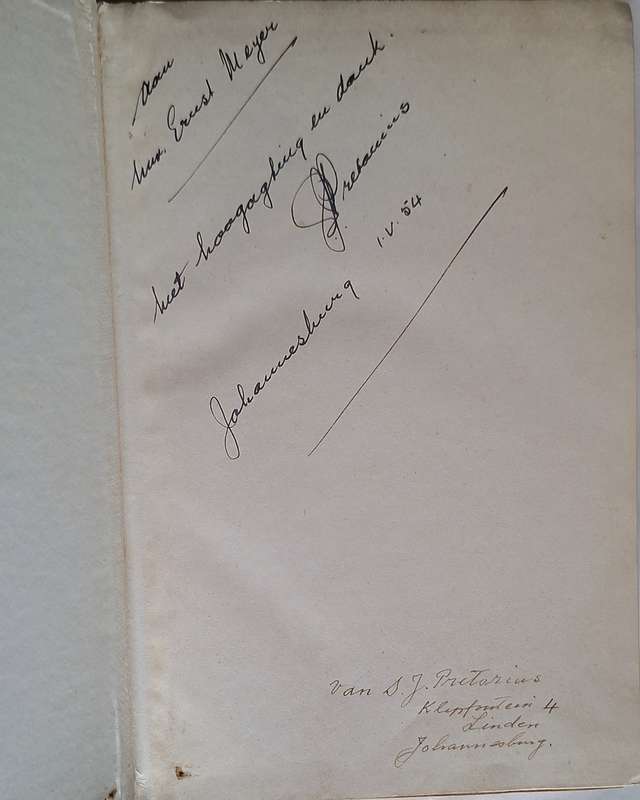 Aan
Mnr. Ernst Meyer
Met hoogagting en dank.
Pretorius
1.V.54
Johannesburg
van S.J. Pretorius
Klipfontein 4
Linden
Johannesburg.